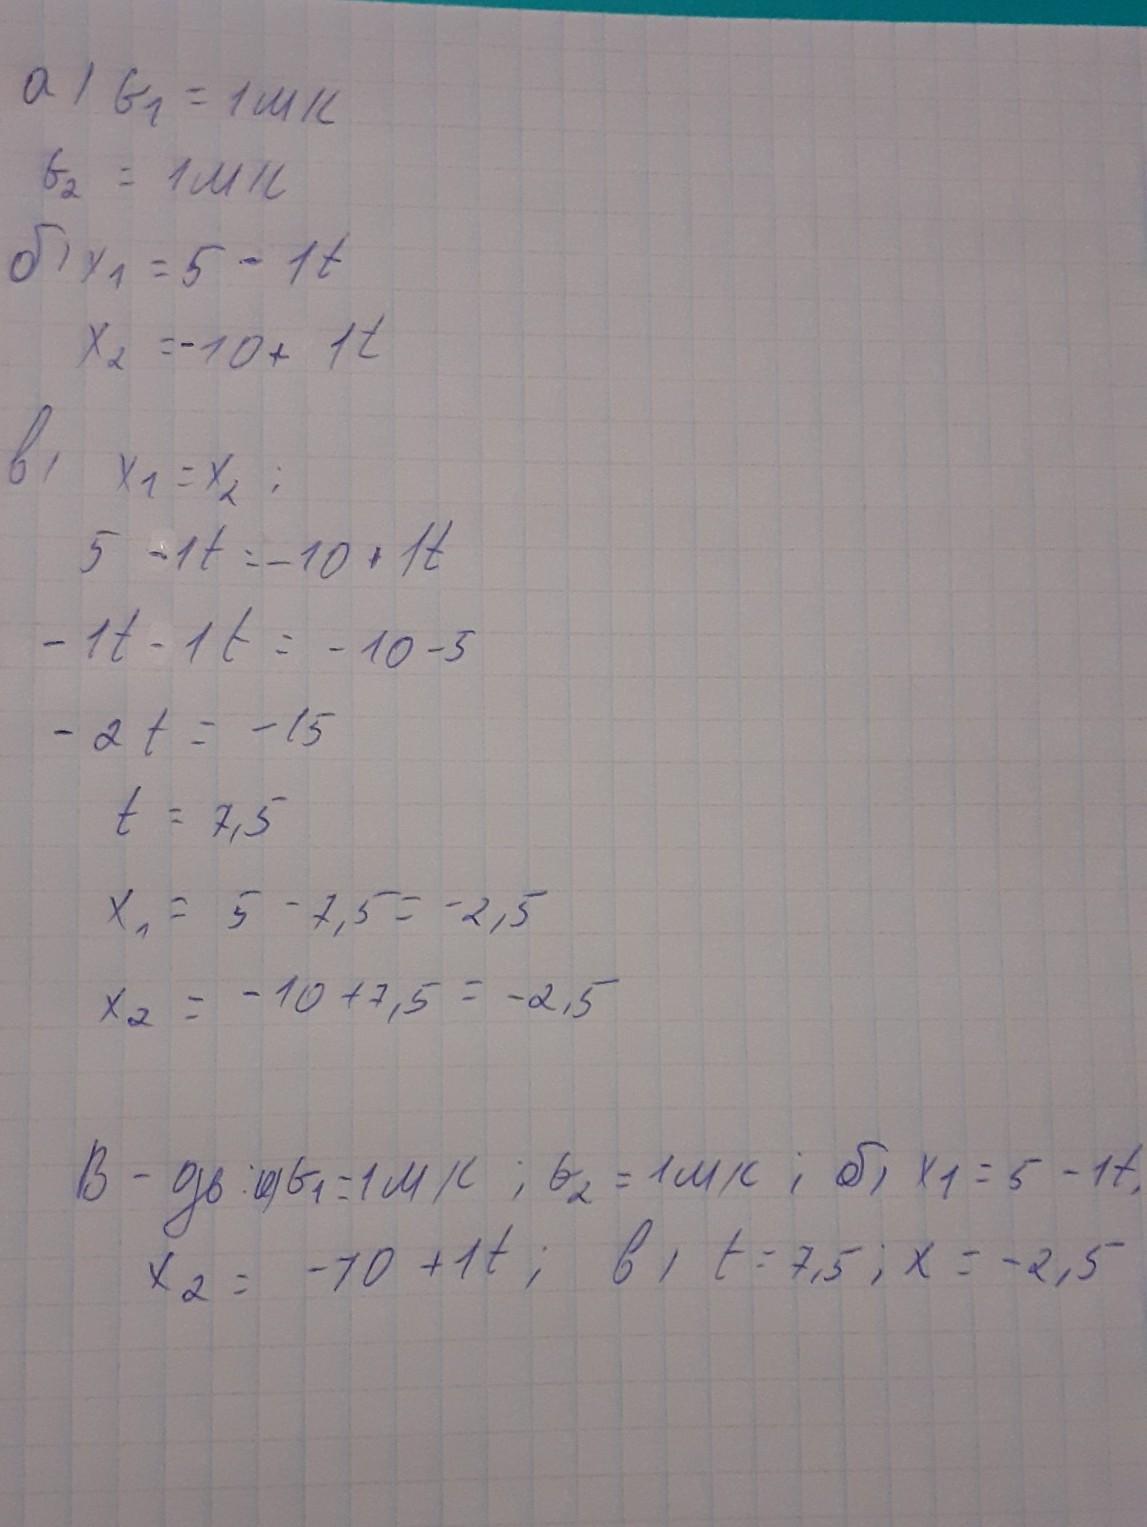 а) б₁ = 1 м/с
б₂ = 1 м/с
б) x₁ = 5 - 1t
x₂ = -10 + 1t
в) x₁ = x₂ ;
5 - 1t = -10 + 1t
-1t - 1t = -10 - 5
-2t = -15
t = 7,5
x₁ = 5 - 7,5 = -2,5
x₂ = -10 + 7,5 = -2,5
В-дь: а) б₁ = 1 м/с ; б₂ = 1 м/с ; б) x₁ = 5 - 1t,
x₂ = -10 + 1t ; в) t = 7,5 ; x = -2,5